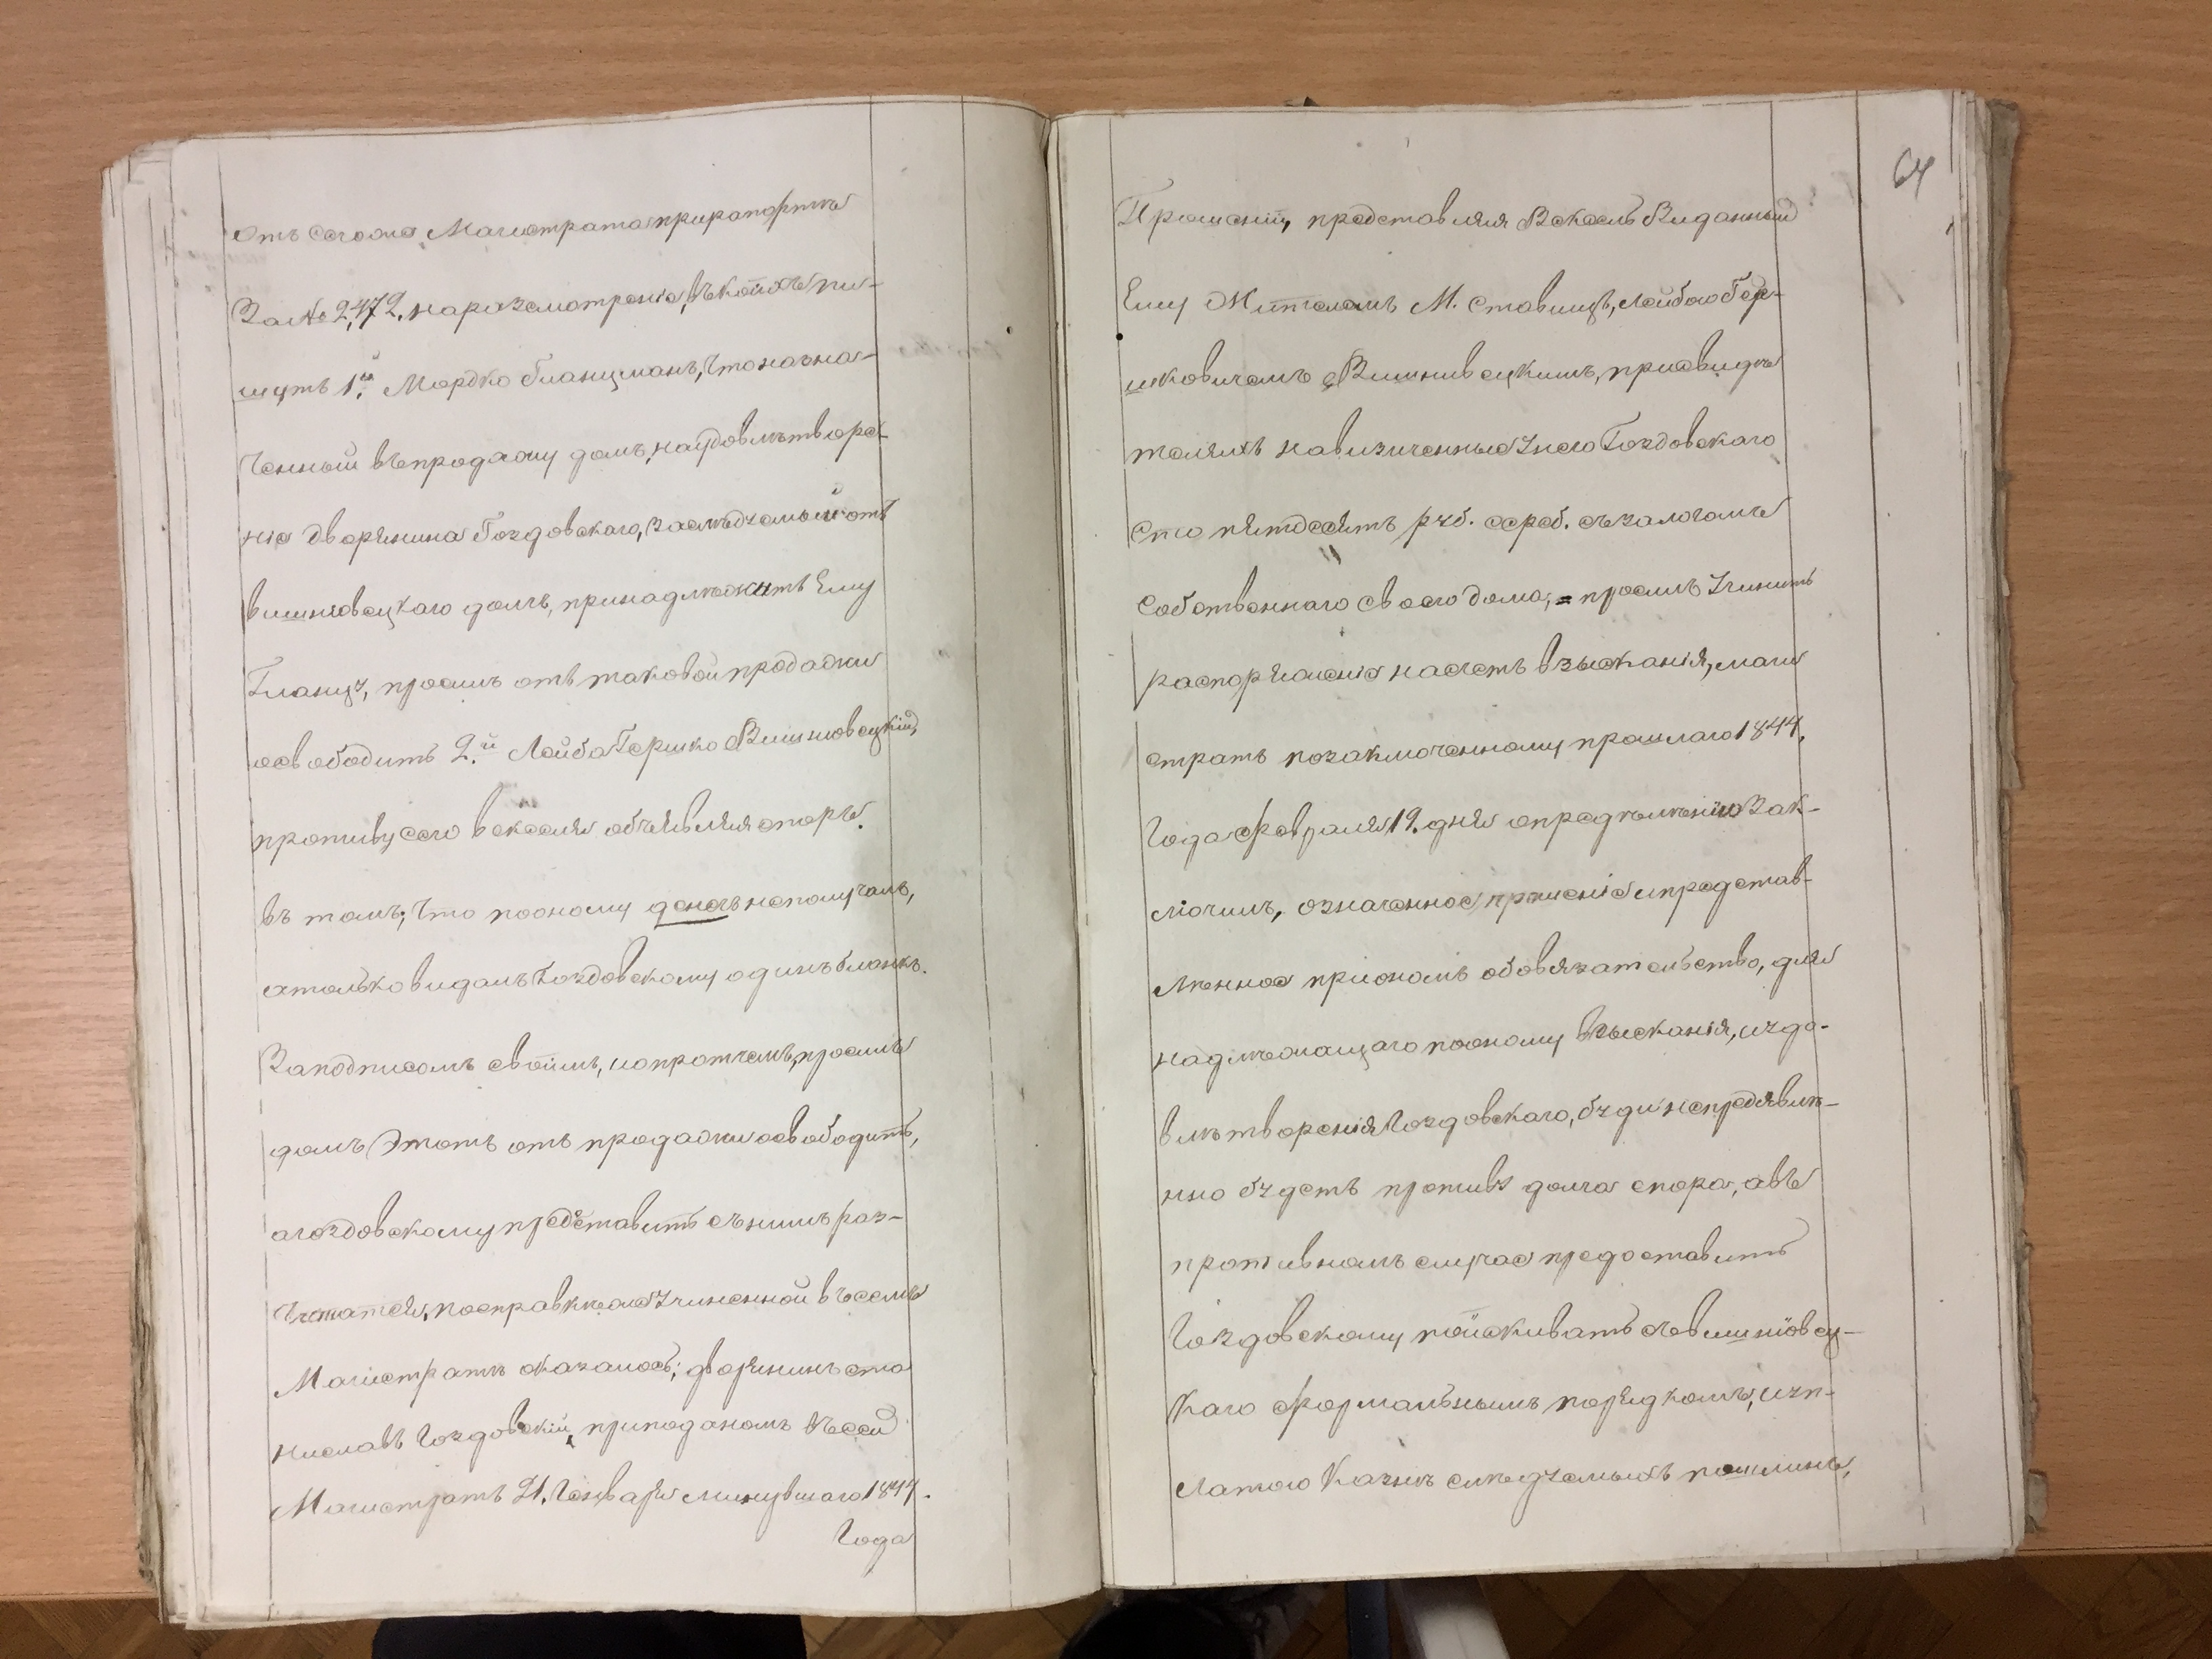 отъ сегоже Магистрата прирапортѣ
За № 2,472, наразсмотреніе, въ коихъ пи-
шутъ 1й Мордко Гланцманъ, что назна-
ченный въпродажу домъ, наудовлетворе-
ніе дворянина Гоздовскаго, заслѣдуемый отъ
вишневецкаго долгъ, принадлежитъ Ему
Гланцу, просилъ отъ таковой продажи
освободить 2.й Лейба Гершко Вишневецкій,
противу сего векселя объявляя споръ,
въ томъ; что пооному денегъ неполучалъ,
атолько видалъ Гоздовскому одинъ бланкъ.
Заподписомъ своимъ, ипротчемъ, просилъ
домъ Этотъ отъ продажи освободить,
агоздовскому представить съ нимъ раз-
щитатся, посправкѣже учиненной въ семъ
Магистратѣ оказалось; дворянинъ ста
ниславъ Гоздовскій, приподаномъ въ сей
Магистратъ 21, Генваря минувшаго 1844.
Года
64
Прошеніи, представляя Вексель Виданный
Ему Жителемъ М. Ставищъ, Лейбою Гер-
шковичемъ Вишнивецкимъ, присвидѣ
теляхъ навизиченные унего Гоздовскаго
Сто пятдесятъ руб. сереб. съ залогомъ
Собственнаго своего дома, = просилъ Учинить
распоряженіе насчетъ взысканія, маги
стратъ позаключенному прошлаго 1844,
Года февраля 19. дня опредѣленію Зак-
лючилъ, означенное прошеніе ипредстав-
ленное приономъ обовязательство, для
надлежащаго пооному взысканія, иудо-
влетворенія Гоздовскаго, буди непредявле-
нно будетъ противу долга спора, авъ
противномъ случае предоставить
Гоздовскому поискивать съ вишніовец-
Каго формальнымъ порядкомъ, иуп-
латою Казнѣ следуемыхъ пошлинъ,